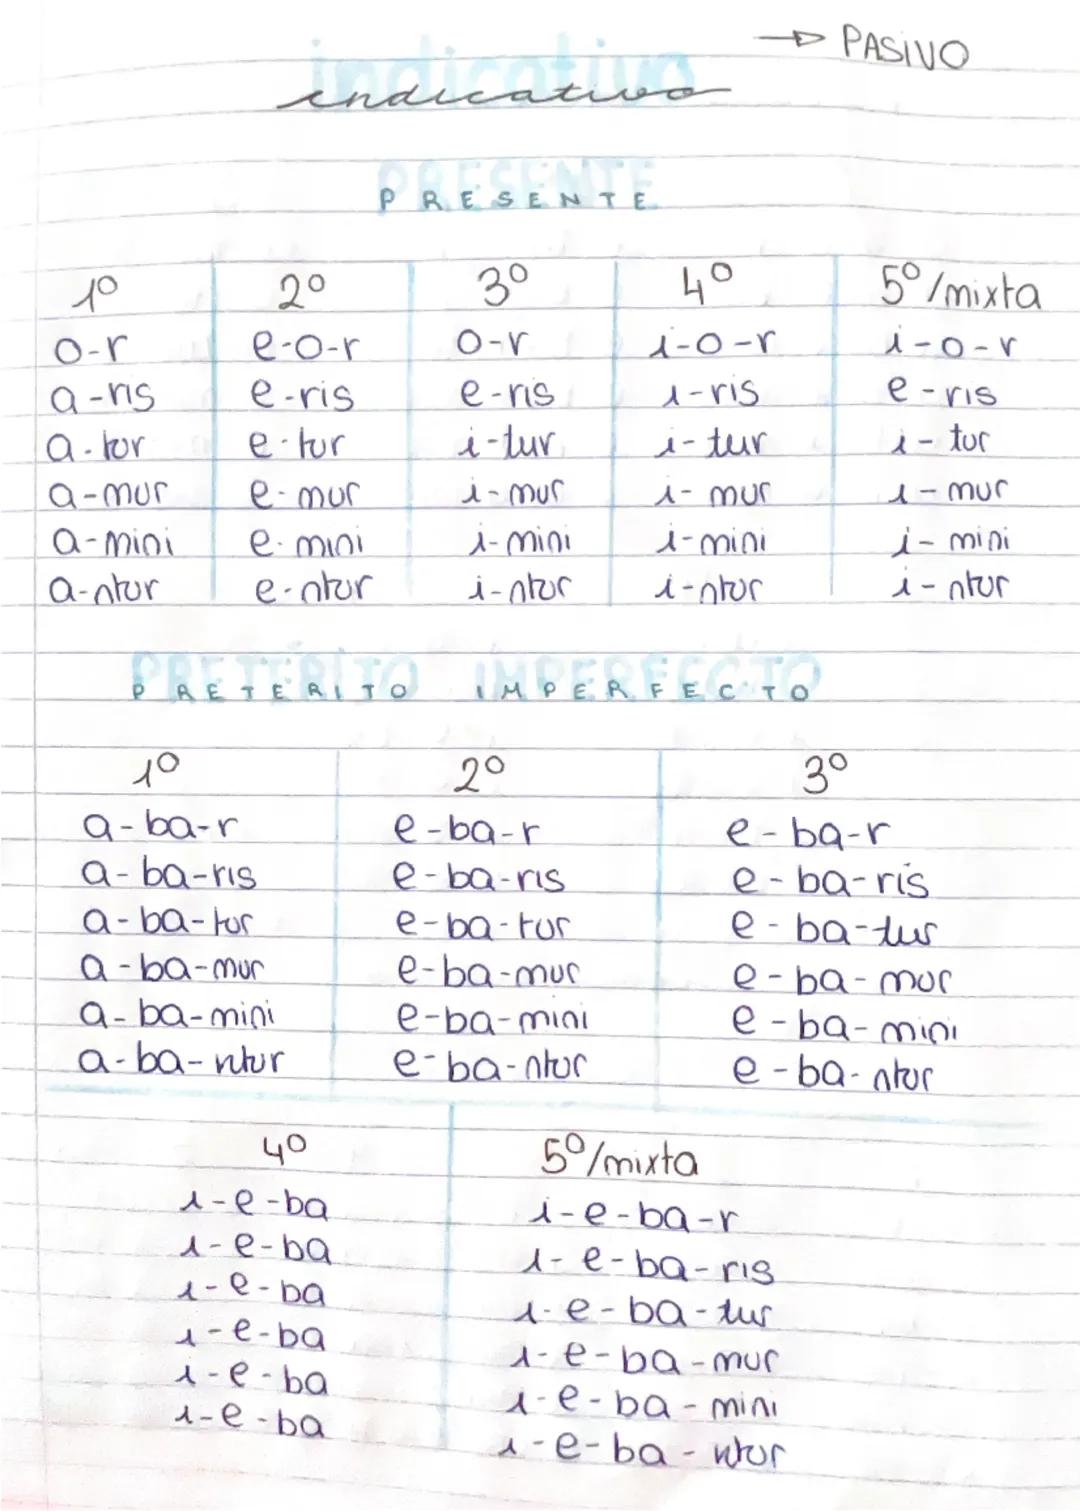 → PASIVO
indicativo
PRESENTE
1º 2º 3º 4º 5º/mixta
o-r e-o-r o-r i-o-r i-o-r
a-ris e-ris e-ris i-ris e-ris
a-tur e-tur i-tur i-tur i-tur
a-mur e-mur i-mur i-mur i-mur
a-mini e-mini i-mini i-mini i-mini
a-ntur e-ntur i-ntur i-ntur i-ntur
PRETERITO IMPERFECTO
1º 2º 3º
a-ba-r e-ba-r e-ba-r
a-ba-ris e-ba-ris e-ba-ris
a-ba-tur e-ba-tur e-ba-tur
a-ba-mur e-ba-mur e-ba-mur
a-ba-mini e-ba-mini e-ba-mini
a-ba-ntur e-ba-ntur e-ba-ntur
4º 5º/mixta
i-e-ba i-e-ba-r
i-e-ba i-e-ba-ris
i-e-ba i-e-ba-tur
i-e-ba i-e-ba-mur
i-e-ba i-e-ba-mini
i-e-ba i-e-ba-ntur